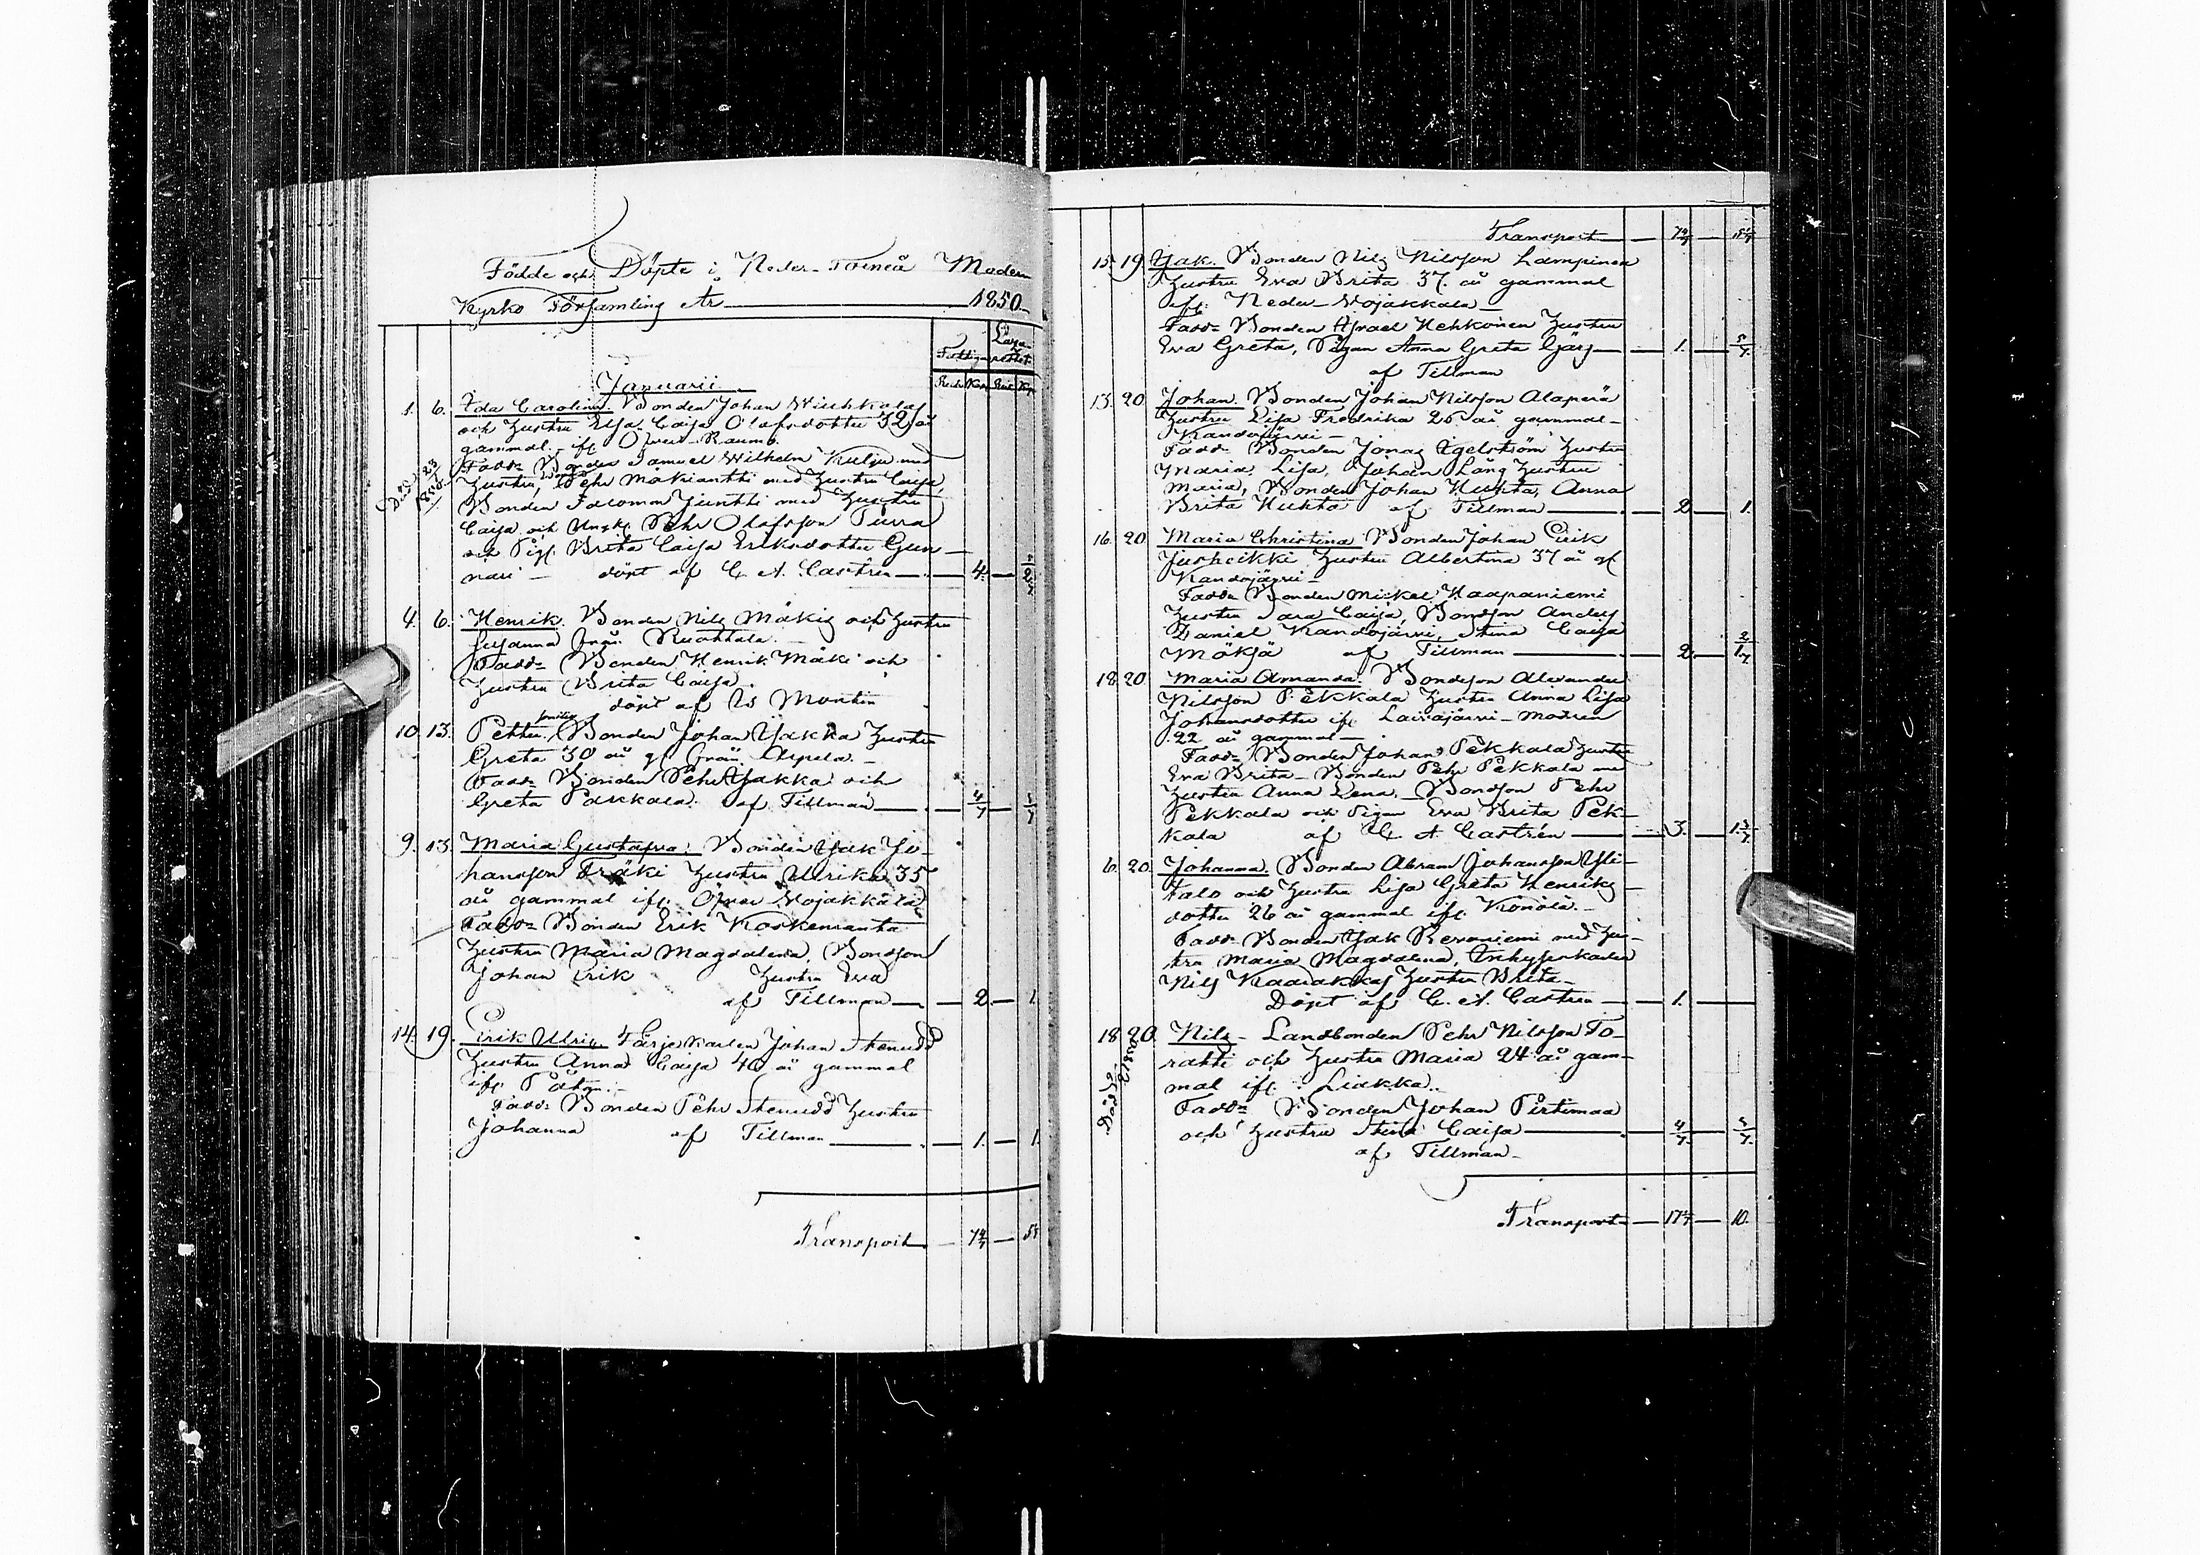 Födde och Döpte i Neder-Torneå Moder
Kyrko Församling År 1850.
Fattig
Januarii
1. 6. Ida Carolina. Bonden Johan
och hustru Elsa Caisa Olofsdotter 32 år
gammal. ifr. Öfver-Raumo.
Fadd: Bonden Samuel Wilhelm Kulju med
hustru, Pehr Mäkianthi med hustru Caisa,
Död 23/1 1850
Bonden Salomon Junthi med hustru
Caisa och Ungk. Pehr Olofsson Turra
och Pig. Brita Caisa Eriksdotter Gun-
nari - döpt af C. A. Castrén 4.
4. 6. Henrik. Bonden Nils Mäki och hustru
Susanna från Ruottala.
Fadd: Bonden Henrik Mäki och
hustru Brita Caisa.
döpt af Martin
10. 13. Petter. Bonden Johan Yakka hustru
Greta 30 år g. från Arpela.
Fadd: Bonden Pehr Yakka och
Greta Pakkala. af Tillman 4/7
9. 13. Maria Gustafva. Bonden Isak Jo-
hansson Träki hustru Ulrika 35
år gammal ifr. Öfver Vojakkala
Fadd: Bonden Erik Koskenranta
hustru Maria Magdalena, Bondson
Johan Erik hustru Eva
af Tillman 2 1.
14. 19. Erik Ulrik Färjekarlen Johan Stenudd
hustru Anna Caisa 40 år gammal
ifr.
Fadd: Bonden Pehr Stenudd hustru
Johanna af Tillman 1. 1.
Transport 7 4/7
Transport 7 4/7
15. 19. Isak. Bonden Nils Nilsson Lampinen
hustru Eva Brita 37. år gammal
ifr. Neder-Vojakkala
Fadd: Bonden Israel Hehkonen hustru
Eva Greta, Pigan Anna Greta 1. 5/7
af Tillman
13. 20 Johan. Bonden Johan Nilsson Alaperä
hustru Lisa Fredrika 26 år gammal
Kandojärvi
Fadd: Bonden Jonas Egelström hustru
Maria Lisa, Johan Lång hustru
Maria, Bonden Johan Huhta, Anna
Brita Huhta af Tillman 2 1.
16. 20. Maria Christina Bonden Johan Erik
Juoheikki hustru Albertina 37 år gl
Kandojärvi
Fadd: Bonden Mickel Haapaniemi
hustru Sara Caisa, Bondson Anders
Daniel Kandojärvi, Stina Caisa
Mäkjä af Tillman 2. 1 2/7
18. 20. Maria Amanda. Bondeson Alexander
Nilsson Pekkala hustru Anna Lisa
Johansdotter ifr. Laivajärvi - modren
22 år gammal
Fadd: Bonden Johan Pekkala hustru
Eva Brita - Bonden Pehr Pekkala med
hustru Anna Lena. - Bondson Pehr
Pekkala och Pigan Eva Brita Pek-
kala af C. A. Castrén 3. 1 3/7
6. 20. Johanna. Bonden Abram Johansson Yli-
talo och hustru Lisa Greta Henriks-
dotter 26 år gammal ifr. Könölä.
Fadd: Bonden Isak Revoniemi med hu-
stru Maria Magdalena, Inhyseskarlen
Nils hustru Brita
Döpt af C. A. Castrén 1.
18 20. Nils - Landbonden Pehr Nilsson To-
ratti och hustru Maria 24 år gam-
mal ifr. Liakka.
Död
Fadd: Bonden Johan Pirtimaa
och hustru Stina Caisa 4/7 5/7
af Tillman
Transport 17 4/7 10.